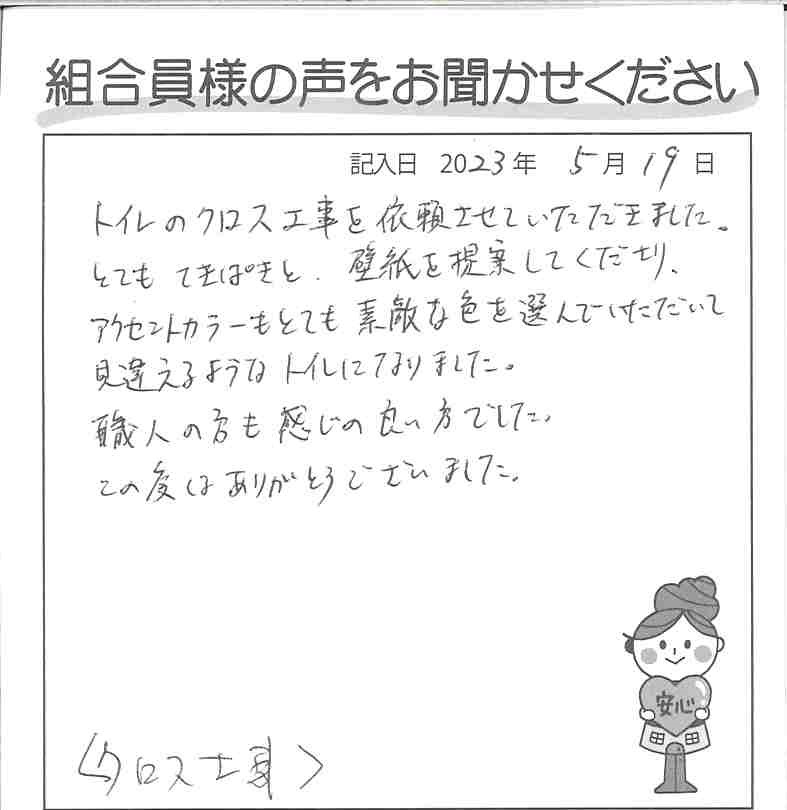 組合員様の声をお聞かせください
記入日 2023年 5月 19日
トイレのクロス工事を依頼させていただきました。
とても てきぱきと、壁紙を提案してくださり、
アクセントカラーもとても素敵な色を選んでいただいて
見違えるようなトイレになりました。
職人の方も感じの良い方でした。
この度はありがとうございました。
安心
〈クロス工事〉